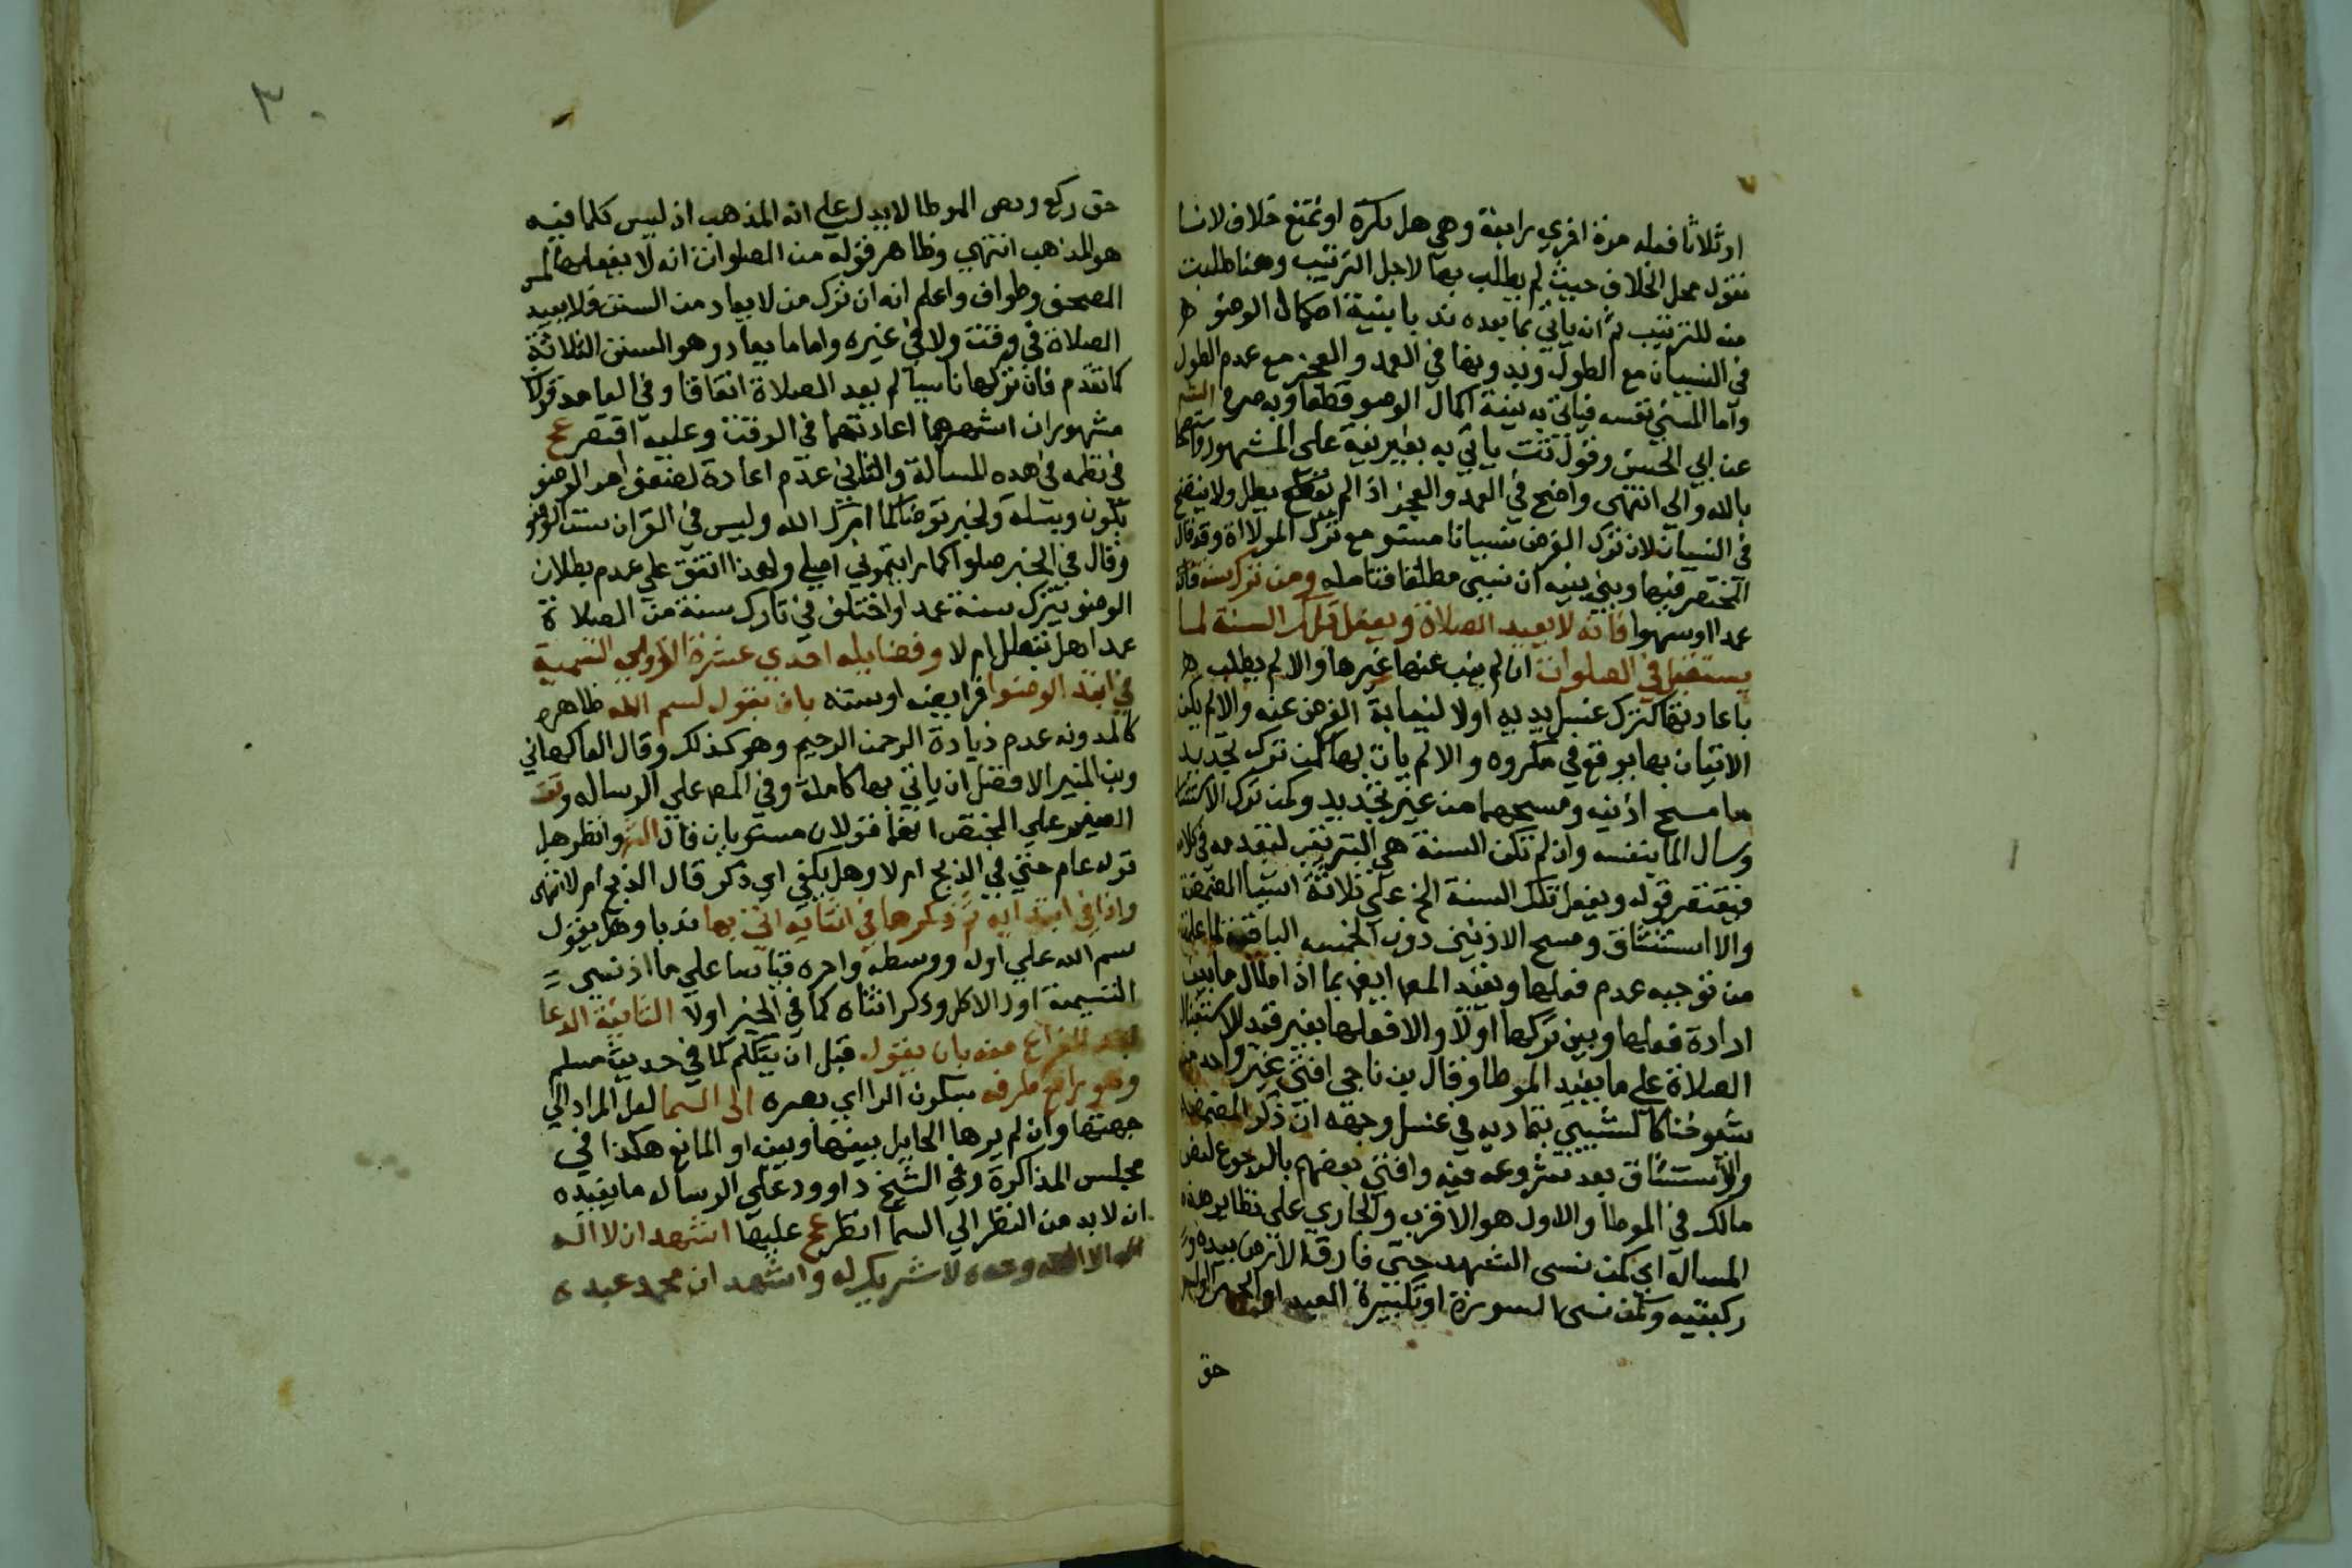 او ثلاثا فعله مرة اخري رابعة وهي هل تكره او تمنع خلاف لانا
نقول محل الخلاف حيث لم يطلب بها لاجل الترتيب وهنا طلبت
منه للترتيب ثم ان ياتي بما بعده ندبا بنية اكمال الوضو
في النسيان مع الطول وبدونها في العمد والعجز مع عدم الطول
واما المنسي نفسه فياتي به بنية اكمال الوضو قطعا وبه صرح
عن ابي الحسن وقول تت ياتي به بغير نية على المشهور
بالله والي انتهى واضح في العمد والعجز اذا لم يبطل ولا يتضح
في النسيان لان ترك الفرض نسيانا مستو مع ترك الموالاة وقد قال
المختصر فيها وبنى بنية ان نسي مطلقا فتامله ومن ترك سنة
عمدا او سهوا فانه لا يعيد الصلاة ويفعل تلك السنة لما
يستقبل في الصلوات ان لم ينب عنها غيرها والا لم يطلب
باعادتها كترك غسل يديه اولا لنيابة الفرض عنه والا لم يكن
الاتيان بها يوقع في مكروه والا لم يات بها كمن ترك تجديد
ما مسح اذنيه ومسحهما من غير تجديد وكمن ترك
وسال الما بنفسه وان لم تكن السنة هي الترتيب لتقدمه في
فيقتصر قوله ويفعل تلك السنة الخ على ثلاثة اشيا المضمضة
والا استنشاق ومسح الاذنين دون الخمسة الباقية لما علمت
من توجيه عدم فعلها ويقيد المص ايض بما اذا اطال ما بين
ارادة فعلها وبين تركها اولا والا فعلها بغير قيد الاستقبال
الصلاة على ما يفيد الموطا وقال بن ناجي افتى غير واحد من
شيوخنا كالشبيبي بتماديه في غسل وجهه ان ذكر المضمضة
والاستنشاق بعد شروعه فيه وافتى بعضهم بالرجوع لنص
مالك في الموطا والاول هو الاقرب والجاري على نظاير هذه
المسالة اي كمن نسي التشهد حتى فارق الارض بيديه
ركبتيه وكمن نسى السورة او تكبيرة العيد او الجهر
حق
٣٠
حتى ركع ونص الموطا لا يدل على انه المذهب اذ ليس كلما فيه
هو المذهب انتهي وظاهر قوله من الصلوات انه لا يفعلها لمس
المصحف وطواف واعلم انه ان ترك من لا يعاد من السنن فلا يعيد
الصلاة في وقت ولا في غيره واما ما يعاد وهو السنن الثلاثة
كما تقدم فان تركها ناسيا لم يعد الصلاة اتفاقا وفي العامد قولا
مشهوران اشهرهما اعادتهما في الوقت وعليه اقتصر عج
في نظمه في هذه المسالة والثاني عدم اعادة لضعف امر الوضو
بكون وسيلة ولخبر توضا كما امرك الله وليس في القران سنن الوضو
وقال في الخبر صلوا كما رايتموني اصلي ولهذا اتفق على عدم بطلان
الوضو بترك سنة عمدا واختلف في تارك سنة من الصلاة
عمدا هل تبطل ام لا وفضايله احدي عشرة الاولي التسمية
في ابتدا الوضوا فرايضه او سننه بان يقول بسم الله ظاهره
كالمدونه عدم زيادة الرحمن الرحيم وهو كذلك وقال الفاكهاني
وبن المنير الافضل ان ياتي بها كاملة وفي المص على الرساله وتت
الصغير على المختصر انهما قولان مستويان قال وانظر هل
قوله عام حتى في الذبح ام لا وهل يكفي اي ذكر قال الذبح ام لا انتهى
واذا في ابتدايه ثم ذكرها في اثنايه اتى بها ندبا وهل يقول
بسم الله على اوله ووسطه واخره قياسا على ما اذ نسى
التسمية اول الاكل وذكر اثناه كما في الخبر اولا الثانية الدعا
بعد الفراغ منه بان يقول قبل ان يتكلم كما في حديث مسلم
وهو رافع طرفه بسكون الرا اي بصره الى السما لعل المراد الي
جهتها وان لم يرها لحايل بينها وبينه او المانع هكذا في
مجلس المذاكرة وفي الشيخ داوود على الرساله ما يفيده
ان لا بد من النظر الي السما انظر عج عليها اشهد ان لا اله
الا الله وحده لا شريك له واشهد ان محمد عبده